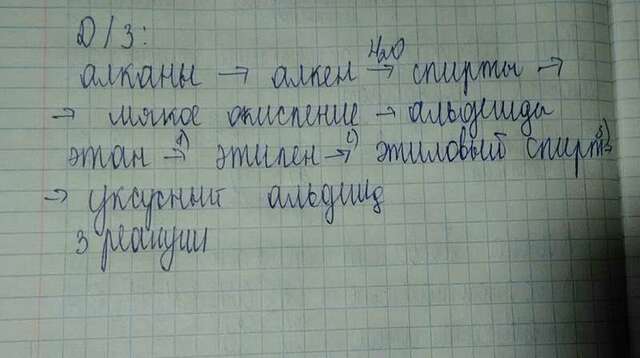 Д/З:
алканы → алкен →H₂O спирты →
→ мягкое окисление → альдегиды
этан →1) этилен →2) этиловый спирт 3)
→ уксусный альдегид
3 реакции